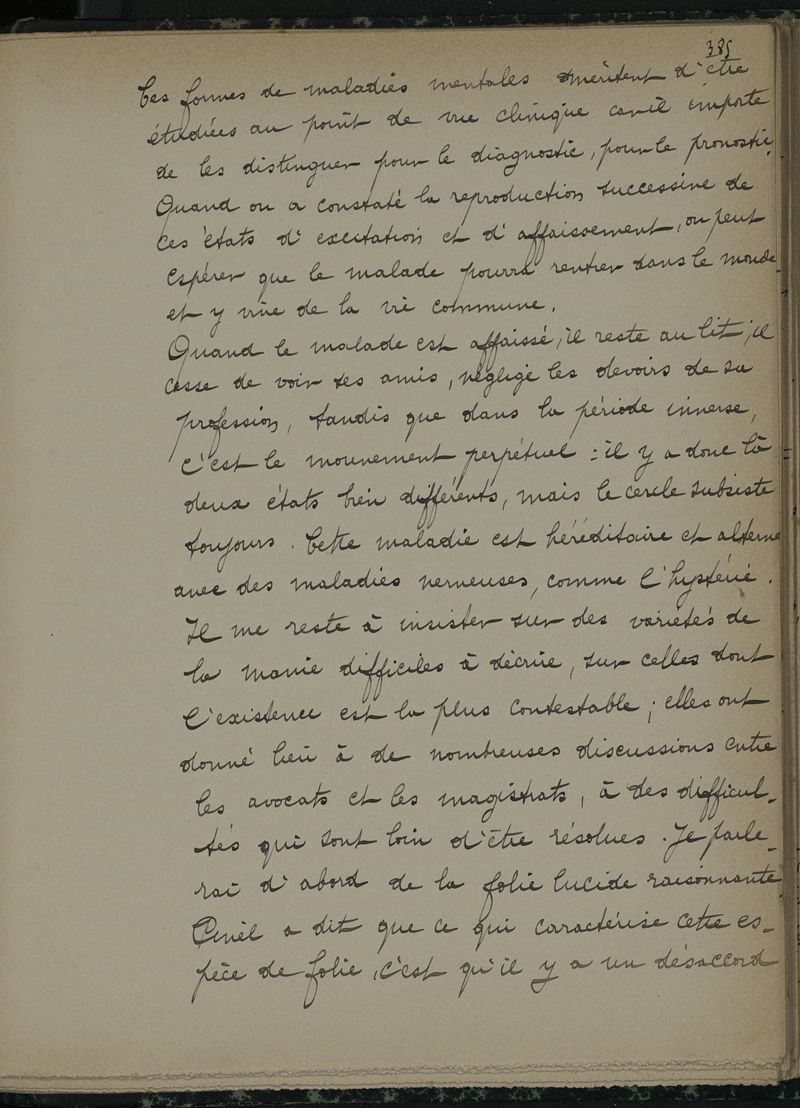 385
Ces formes de maladies mentales méritent d'être
étudiées au point de vue clinique car il importe
de les distinguer pour le diagnostic, pour le pronostic.
Quand on a constaté la reproduction successive de
ces états d'excitation et d'affaissement, on peut
espérer que le malade pourra rentrer dans le monde
et y vivre de la vie commune.
Quand le malade est affaissé, il reste au lit, il
cesse de voir ses amis, néglige les devoirs de sa
profession, tandis que dans la période inverse,
c'est le mouvement perpétuel : il y a donc là
deux états bien différents, mais le cercle subsiste
toujours. Cette maladie est héréditaire et alterne
avec des maladies nerveuses, comme l'hystérie.
Il me reste à insister sur des variétés de
la manie difficiles à décrire, sur celles dont
l'existence est la plus contestable ; elles ont
donné lieu à de nombreuses discussions entre
les avocats et les magistrats, à des difficul-
tés qui sont loin d'être résolues. Je parle-
rai d'abord de la folie lucide raisonnante.
Pinel a dit que ce qui caractérise cette es-
pèce de folie, c'est qu'il y a un désaccord